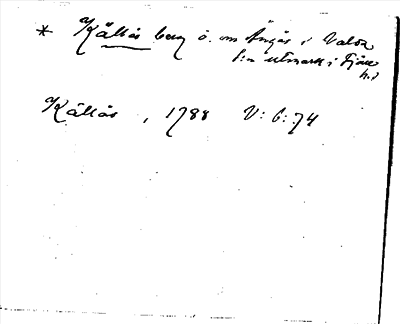 * Källås berg ö. om Ängås i Valda
s:n utmark i Fjäre
h:d
Källås, 1788 V: 6: 74